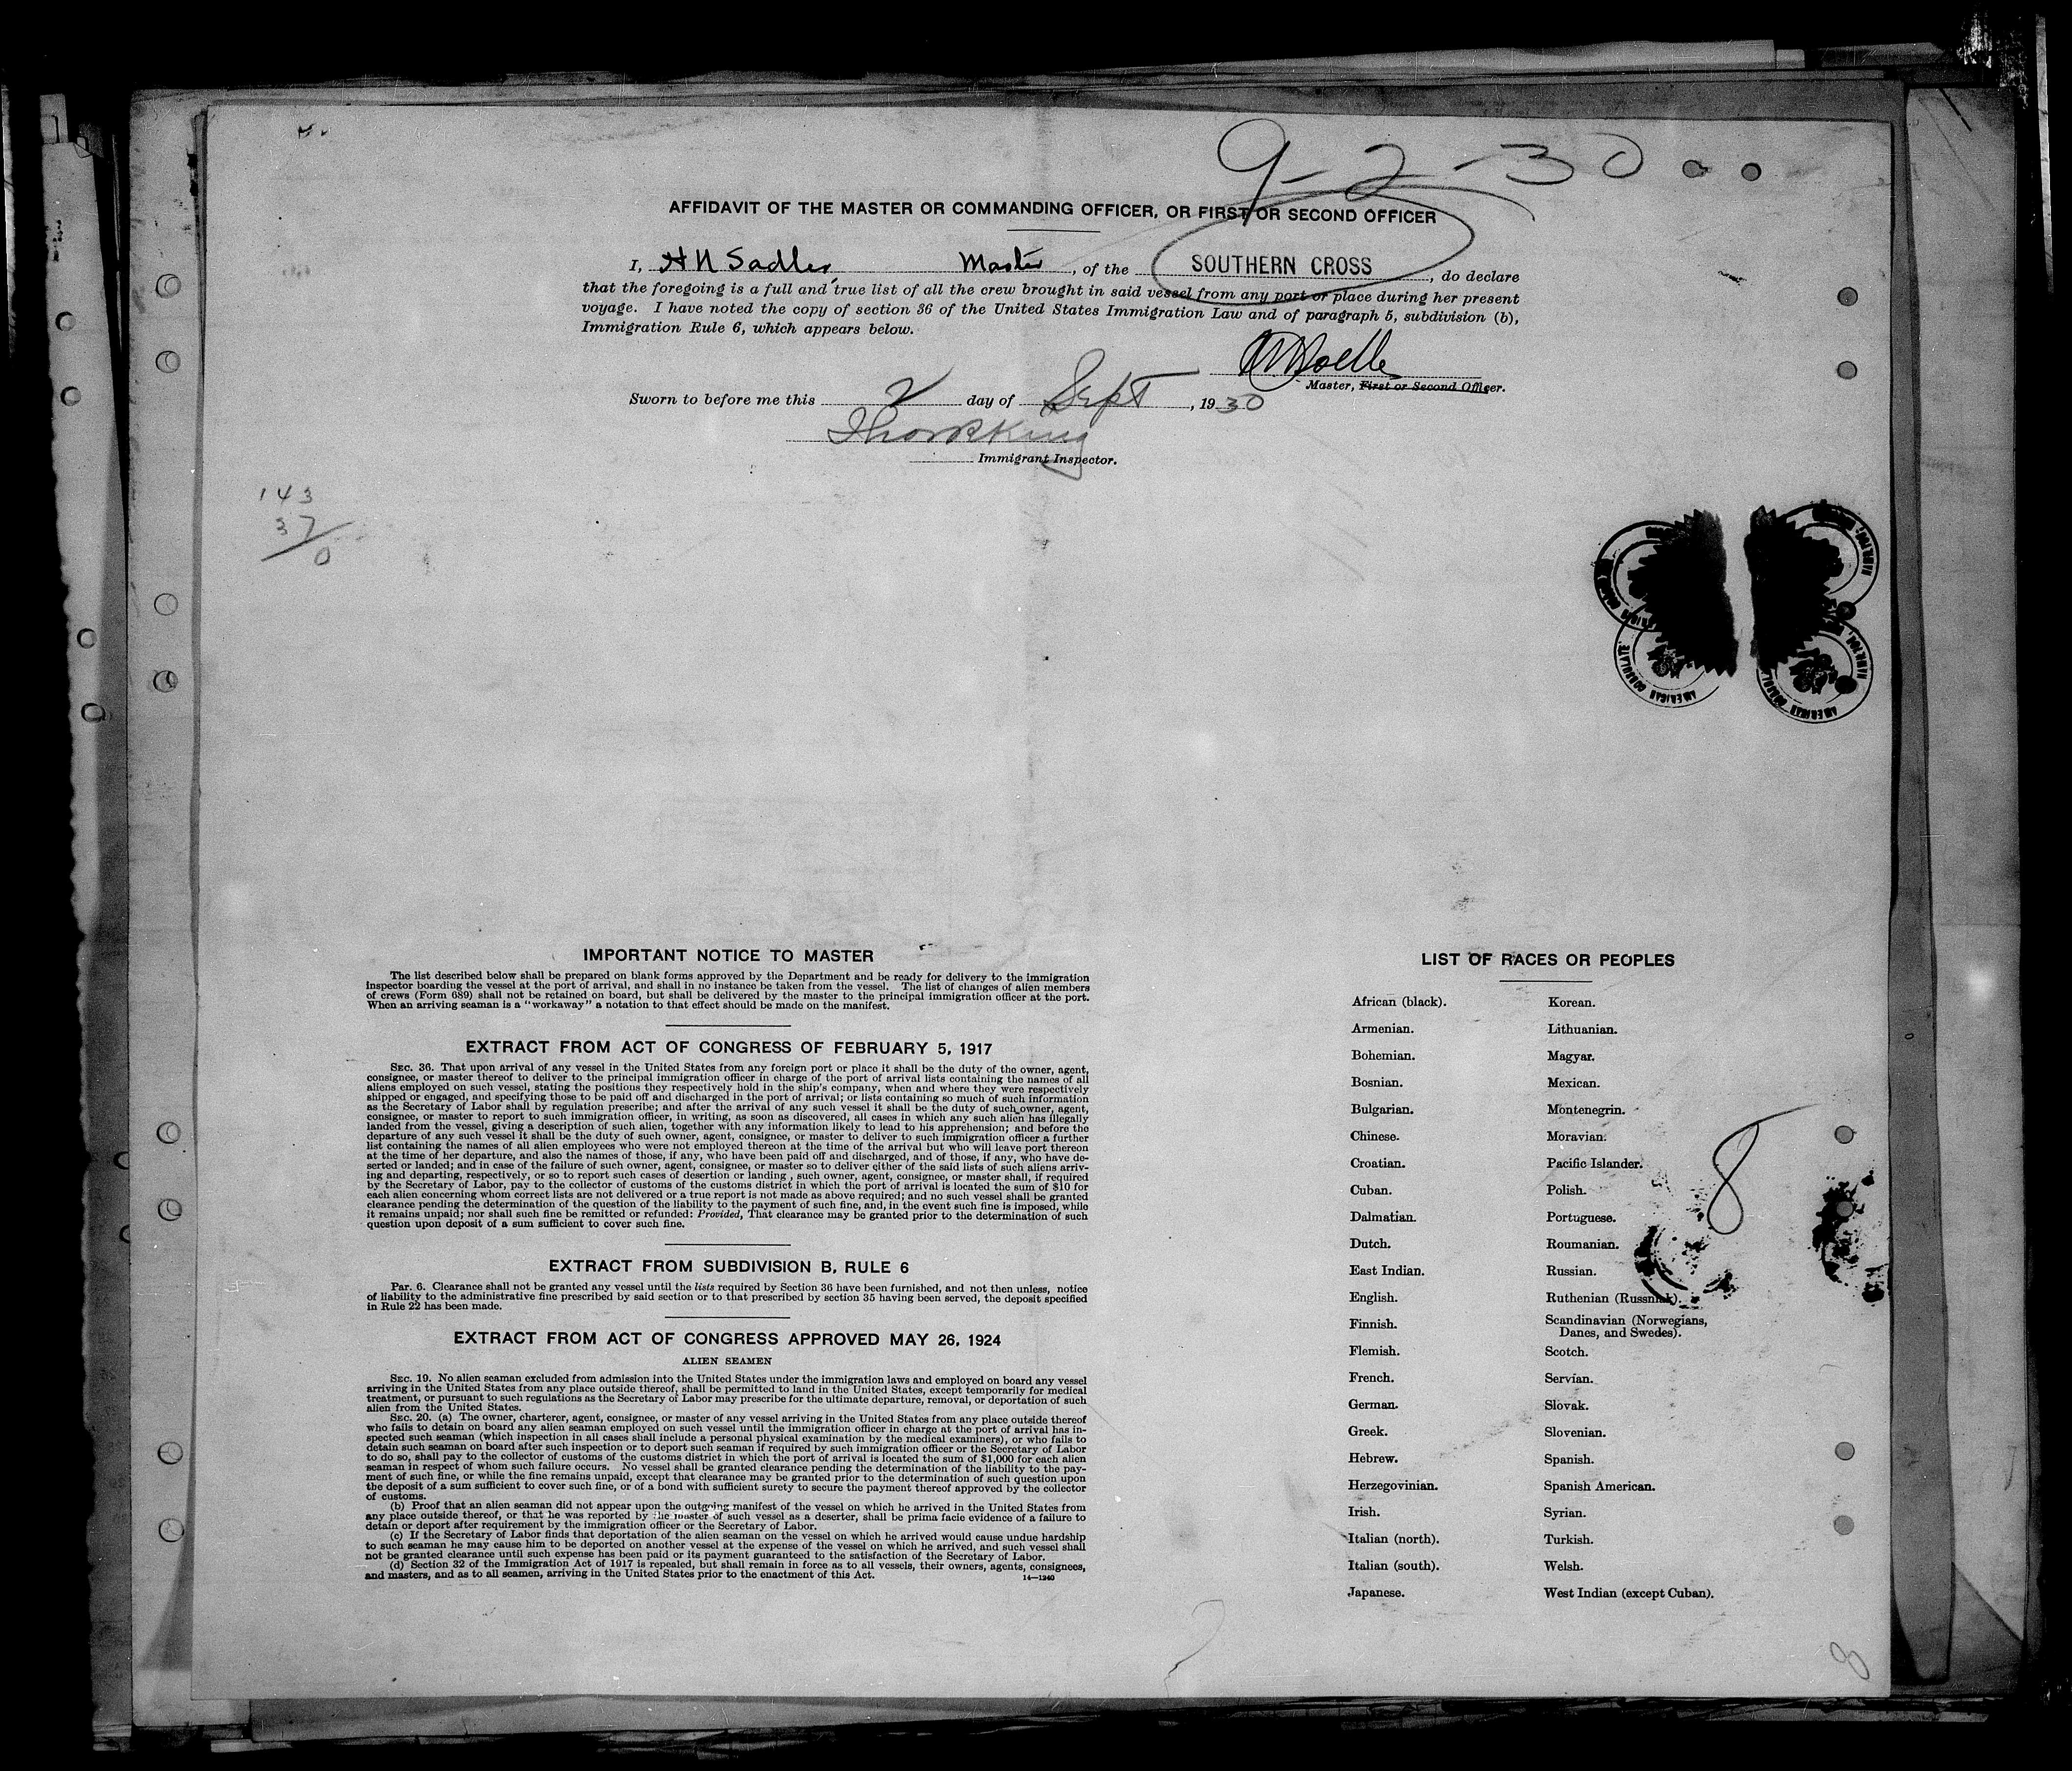 9-2-30
AFFIDAVIT OF THE MASTER OR COMMANDING OFFICER, OR FIRST OR SECOND OFFICER
I, H N Sadler, Master, of the SOUTHERN CROSS, do declare
that the foregoing is a full and true list of all the crew brought in said vessel from any port or place during her present
voyage. I have noted the copy of section 36 of the United States Immigration Law and of paragraph 5, subdivision (b),
Immigration Rule 6, which appears below.
Master, First or Second Officer.
Sworn to before me this 2 day of Sept, 1930
Immigrant Inspector.
143
37
0
IMPORTANT NOTICE TO MASTER
The list described below shall be prepared on blank forms approved by the Department and be ready for delivery to the immigration
inspector boarding the vessel at the port of arrival, and shall in no instance be taken from the vessel. The list of changes of alien members
of crews (Form 689) shall not be retained on board, but shall be delivered by the master to the principal immigration officer at the port.
When an arriving seaman is a "workaway" a notation to that effect should be made on the manifest.
EXTRACT FROM ACT OF CONGRESS OF FEBRUARY 5, 1917
SEC. 36. That upon arrival of any vessel in the United States from any foreign port or place it shall be the duty of the owner, agent,
consignee, or master thereof to deliver to the principal immigration officer in charge of the port of arrival lists containing the names of all
aliens employed on such vessel, stating the positions they respectively hold in the ship's company, when and where they were respectively
shipped or engaged, and specifying those to be paid off and discharged in the port of arrival; or lists containing so much of such information
as the Secretary of Labor shall by regulation prescribe; and after the arrival of any such vessel it shall be the duty of such owner, agent,
consignee, or master to report to such immigration officer, in writing, as soon as discovered, all cases in which any such alien has illegally
landed from the vessel, giving a description of such alien, together with any information likely to lead to his apprehension; and before the
departure of any such vessel it shall be the duty of such owner, agent, consignee, or master to deliver to such immigration officer a further
list containing the names of all alien employees who were not employed thereon at the time of the arrival but who will leave port thereon
at the time of her departure, and also the names of those, if any, who have been paid off and discharged, and of those, if any, who have de-
serted or landed; and in case of the failure of such owner, agent, consignee, or master so to deliver either of the said lists of such aliens arriv-
ing and departing, respectively, or so to report such cases of desertion or landing , such owner, agent, consignee, or master shall, if required
by the Secretary of Labor, pay to the collector of customs of the customs district in which the port of arrival is located the sum of $10 for
each alien concerning whom correct lists are not delivered or a true report is not made as above required; and no such vessel shall be granted
clearance pending the determination of the question of the liability to the payment of such fine, and, in the event such fine is imposed, while
it remains unpaid; nor shall such fine be remitted or refunded: Provided, That clearance may be granted prior to the determination of such
question upon deposit of a sum sufficient to cover such fine.
EXTRACT FROM SUBDIVISION B, RULE 6
PAR. 6. Clearance shall not be granted any vessel until the lists required by Section 36 have been furnished, and not then unless, notice
of liability to the administrative fine prescribed by said section or to that prescribed by section 35 having been served, the deposit specified
in Rule 22 has been made.
EXTRACT FROM ACT OF CONGRESS APPROVED MAY 26, 1924
ALIEN SEAMEN
SEC. 19. No alien seaman excluded from admission into the United States under the immigration laws and employed on board any vessel
arriving in the United States from any place outside thereof, shall be permitted to land in the United States, except temporarily for medical
treatment, or pursuant to such regulations as the Secretary of Labor may prescribe for the ultimate departure, removal, or deportation of such
alien from the United States.
SEC. 20. (a) The owner, charterer, agent, consignee, or master of any vessel arriving in the United States from any place outside thereof
who fails to detain on board any alien seaman employed on such vessel until the immigration officer in charge at the port of arrival has in-
spected such seaman (which inspection in all cases shall include a personal physical examination by the medical examiners), or who fails to
detain such seaman on board after such inspection or to deport such seaman if required by such immigration officer or the Secretary of Labor
to do so, shall pay to the collector of customs of the customs district in which the port of arrival is located the sum of $1,000 for each alien
seaman in respect of whom such failure occurs. No vessel shall be granted clearance pending the determination of the liability to the pay-
ment of such fine, or while the fine remains unpaid, except that clearance may be granted prior to the determination of such question upon
the deposit of a sum sufficient to cover such fine, or of a bond with sufficient surety to secure the payment thereof approved by the collector
of customs.
(b) Proof that an alien seaman did not appear upon the outgoing manifest of the vessel on which he arrived in the United States from
any place outside thereof, or that he was reported by the master of such vessel as a deserter, shall be prima facie evidence of a failure to
detain or deport after requirement by the immigration officer or the Secretary of Labor.
(c) If the Secretary of Labor finds that deportation of the alien seaman on the vessel on which he arrived would cause undue hardship
to such seaman he may cause him to be deported on another vessel at the expense of the vessel on which he arrived, and such vessel shall
not be granted clearance until such expense has been paid or its payment guaranteed to the satisfaction of the Secretary of Labor.
(d) Section 32 of the Immigration Act of 1917 is repealed, but shall remain in force as to all vessels, their owners, agents, consignees,
and masters, and as to all seamen, arriving in the United States prior to the enactment of this Act.
14—1240
LIST OF RACES OR PEOPLES
African (black). Korean.
Armenian. Lithuanian.
Bohemian. Magyar.
Bosnian. Mexican.
Bulgarian. Montenegrin.
Chinese. Moravian.
Croatian. Pacific Islander.
Cuban. Polish.
Dalmatian. Portuguese.
Dutch. Roumanian.
East Indian. Russian.
English. Ruthenian (Russniak).
Finnish. Scandinavian (Norwegians,
Danes, and Swedes).
Flemish. Scotch.
French. Servian.
German. Slovak.
Greek. Slovenian.
Hebrew. Spanish.
Herzegovinian. Spanish American.
Irish. Syrian.
Italian (north). Turkish.
Italian (south). Welsh.
Japanese. West Indian (except Cuban).
8
8